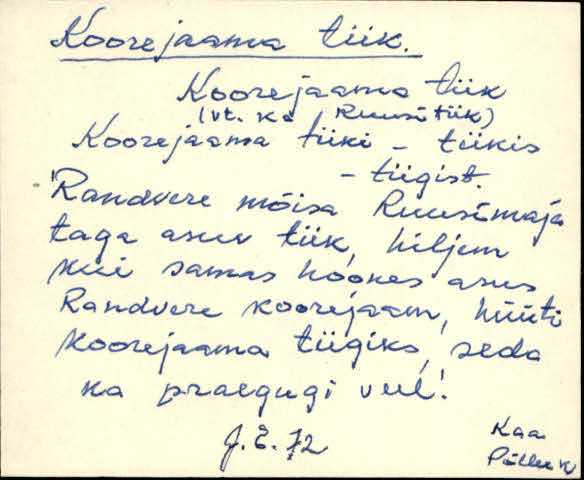 Koorejaama tiik.
Koorejaama tiik
(vt. ka Ruusi tiik)
Koorejaama tiiki - tiikis
- tiigist.
Randvere mõisa Ruusimaja
taga asuv tiik, hiljem
kui samas hoones asus
Randvere koorejaam, hüüti
Koorejaama tiigiks, seda
ka praegugi veel!
J. E. 72
Kaa
Põllu k